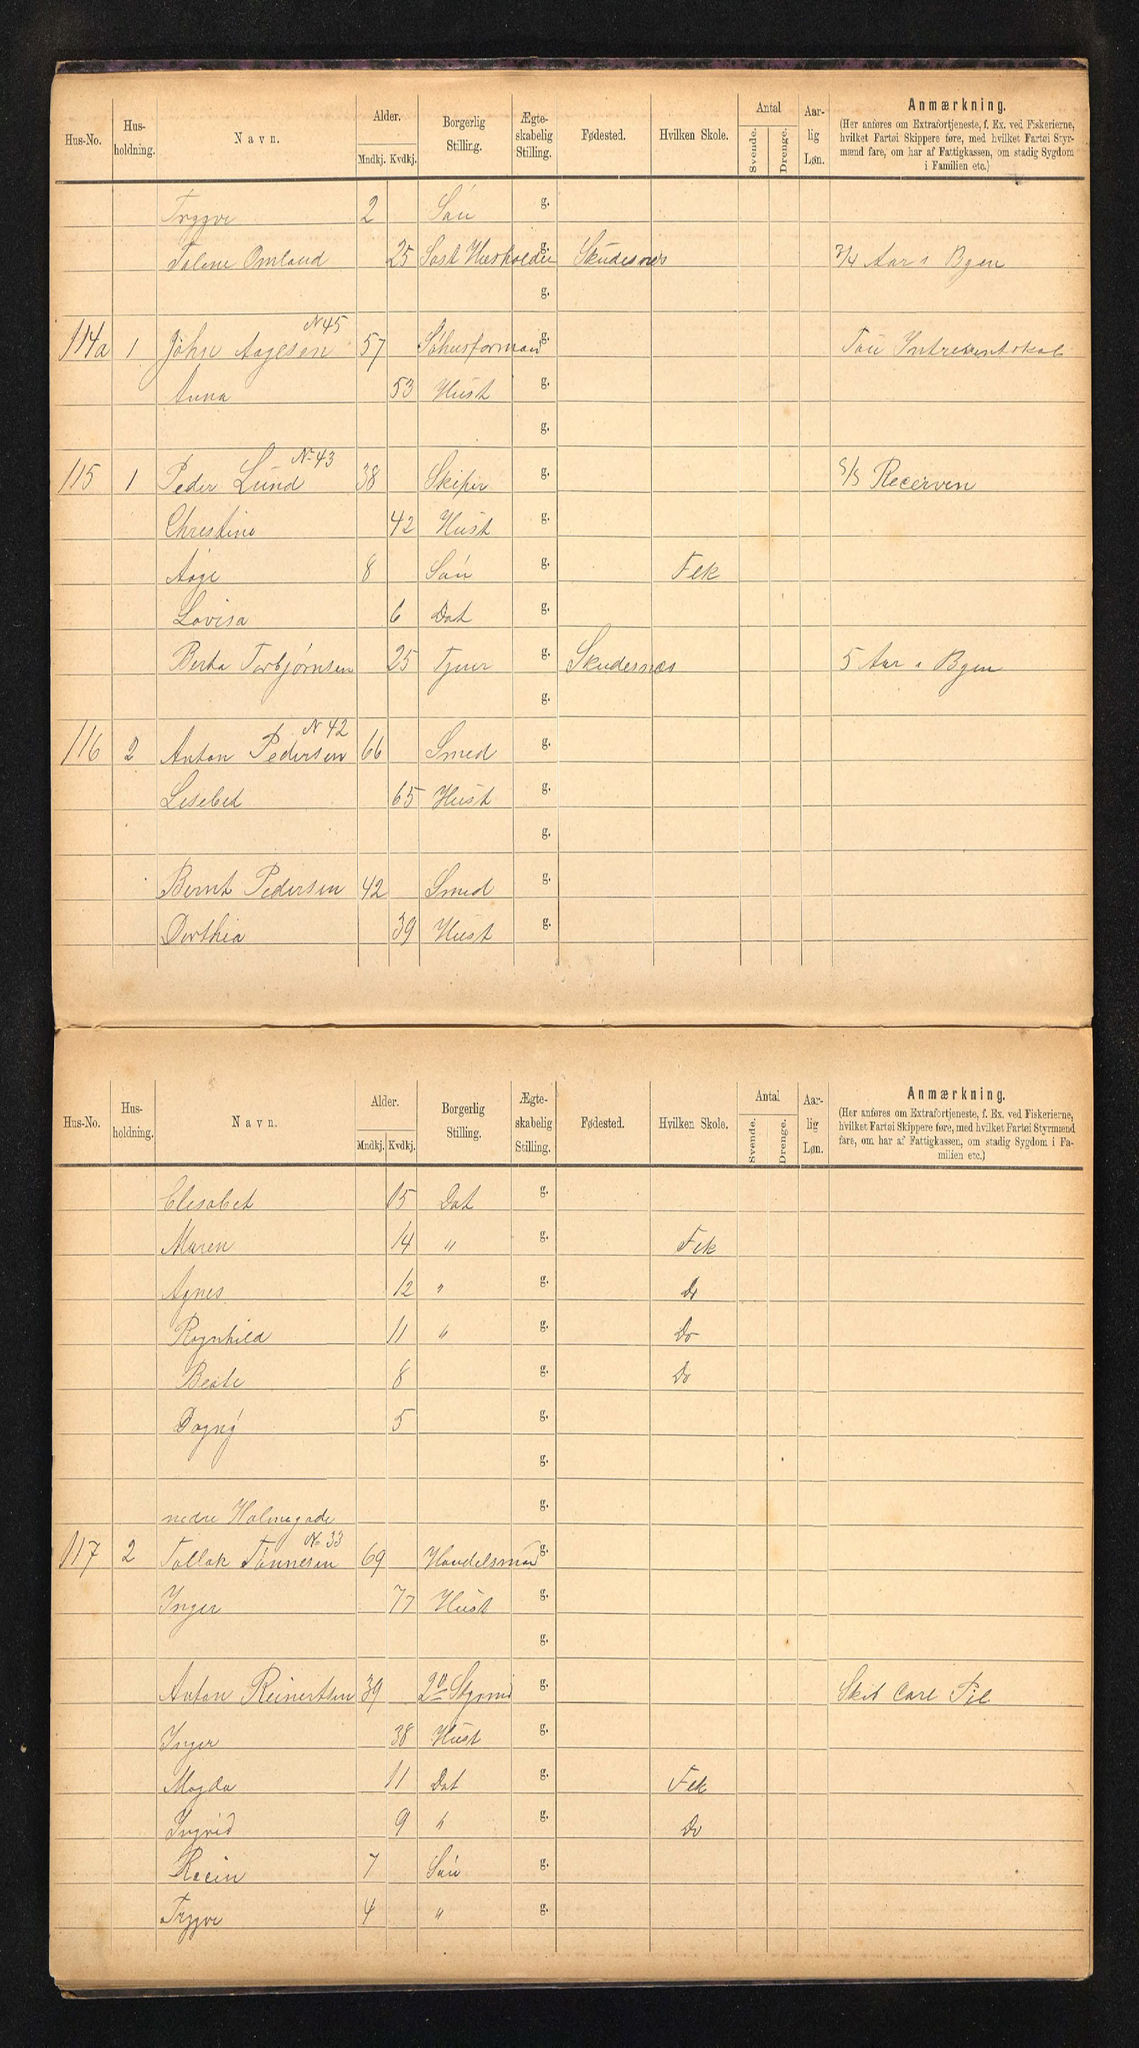 Hus-No. Hus-holdning. Navn. Alder. Mndkj. Kvdkj. Borgerlig Stilling. Ægte-skabelig Stilling. Fødested. Hvilken Skole. Antal Svende. Drenge. Aar-lig Løn. Anmærkning.
(Her anføres om Extrafortjeneste, f. Ex. ved Fiskerierne,
hvilket Fartøi Skippere føre, med hvilket Fartøi Styr-
mænd fare, om har af Fattigkassen, om stadig Sygdom
i Familien etc.)
Trygve 2 Søn g.
Talene Omland 25 Husholder g. Skudesnes 2/4 Aar i Byen
g.
N 45
114a 1 John Aagesen 57 Søhusforman g. Tou
Anna 53 Hust g.
g.
N 43
115 1 Peder Lund 38 Skiper g. S/S Recerven
Chrestine 42 Hust g.
Aage 8 Søn g. Flk
Lovisa 6 Dat g.
Berta Torbjørnsen 25 Tjener g. Skudesnæs 5 Aar i Byen
g.
N 42
116 2 Anton Pedersen 66 Smed g.
Lesebed 65 Hust g.
g.
Bernt Pedersen 42 Smed g.
Dorthia 39 Hust g.
Hus-No. Hus-holdning. Navn. Alder. Mndkj. Kvdkj. Borgerlig Stilling. Ægte-skabelig Stilling. Fødested. Hvilken Skole. Antal Svende. Drenge. Aar-lig Løn. Anmærkning.
(Her anføres om Extrafortjeneste, f. Ex. ved Fiskerierne,
hvilket Fartøi Skippere føre, med hvilket Fartøi Styrmænd
fare, om har af Fattigkassen, om stadig Sygdom i Fa-
milien etc.)
Elesabet 15 Dat g.
Maren 14 " g. Flk
Agnes 12 " g. Do
Ragnhild 11 " g. Do
Beate 8 g. Do
Dagny 5 g.
g.
nedre Holmegade g.
No 33
117 2 Tollak Tønnesen 69 Handelsman g.
Inger 77 Hust g.
g.
Anton Reinertsen 39 2den Styrmd g. Skib Carl Pil
Inger 38 Hust g.
Magda 11 Dat g. Flk
Ingrid 9 " g. Do
Rein 7 Søn g.
Trygve 4 " g.